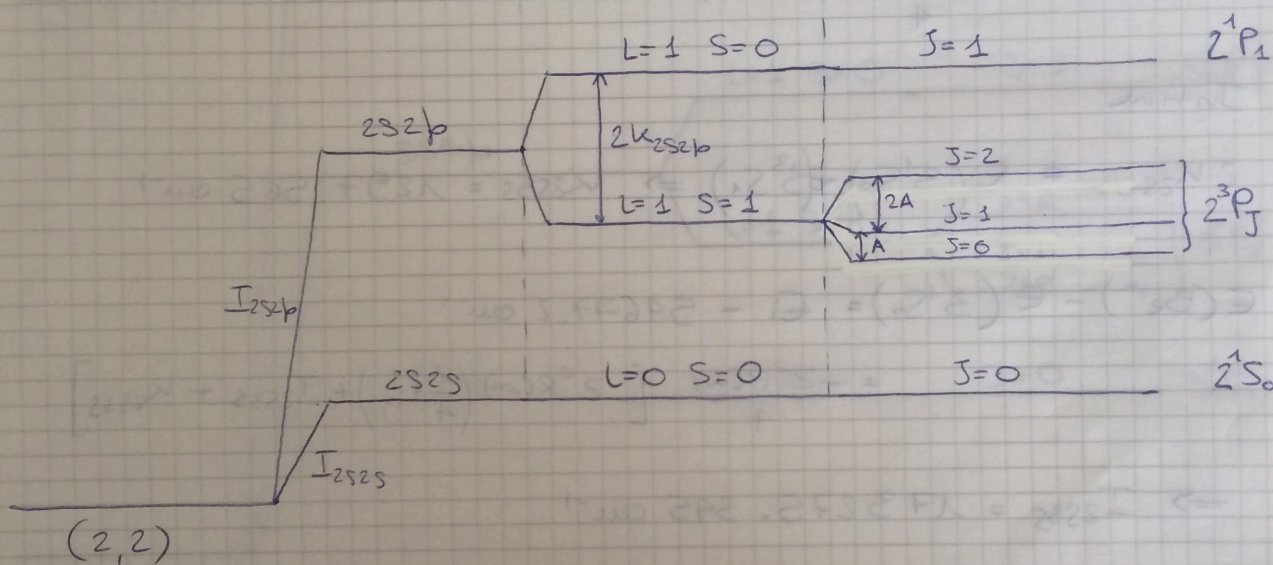 L=1 S=0 J=1 2¹P₁
2s2p
2K₂ₛ₂ₚ
J=2
L=1 S=1 2A J=1 2³P_J
A J=0
I₂ₛ₂ₚ
2s2s L=0 S=0 J=0 2¹S₀
I₂ₛ₂ₛ
(2,2)